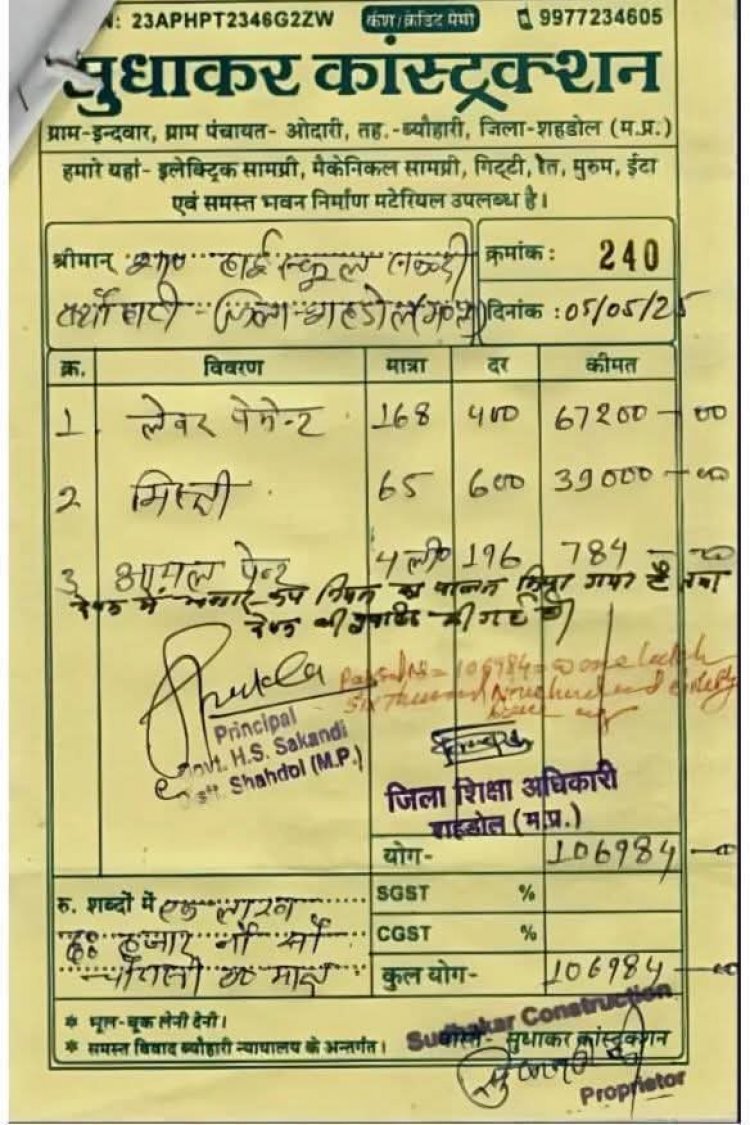 N: 23APHPT2346G2ZW कैश/क्रेडिट मेमो 9977234605
सुधाकर कांस्ट्रक्शन
ग्राम-इन्दवार, ग्राम पंचायत- ओदारी, तह.-ब्यौहारी, जिला-शहडोल (म.प्र.)
हमारे यहां- इलेक्ट्रिक सामग्री, मैकेनिकल सामग्री, गिट्टी, रेत, मुरुम, ईटा
एवं समस्त भवन निर्माण मटेरियल उपलब्ध है।
श्रीमान् हाई स्कूल क्रमांक : 240
जिला-शहडोल (म०प्र०) दिनांक : 05/05/25
क्र. विवरण मात्रा दर कीमत
1 लेवर पेमेन्ट 168 400 67200-00
2 मिस्त्री 65 600 39000-00
3 आयल पेन्ट 4 ली० 196 784-00
देयक में भण्डार क्रय नियम का पालन किया गया है तथा
देयक की की गई थी
Passed Rs = 106984=00 one lakh
Six Thousand Nine hundred eighty
Principal
Govt. H.S. Sakandi
Distt. Shahdol (M.P.)
जिला शिक्षा अधिकारी
शहडोल (म.प्र.)
योग- 106984-00
रु. शब्दों में एक लाख
छः हजार नौ सौ
चौरासी रू मात्र
SGST %
CGST %
कुल योग- 106984-00
* भूल-चूक लेनी देनी।
* समस्त विवाद ब्यौहारी न्यायालय के अन्तर्गत।
वास्ते- सुधाकर कांस्ट्रक्शन
Sudhakar Construction
Proprietor